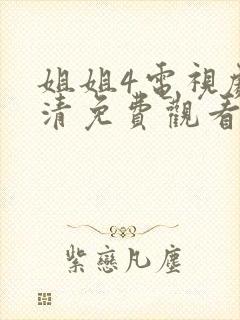 姐姐4電視劇
清免費觀看
紫戀凡塵